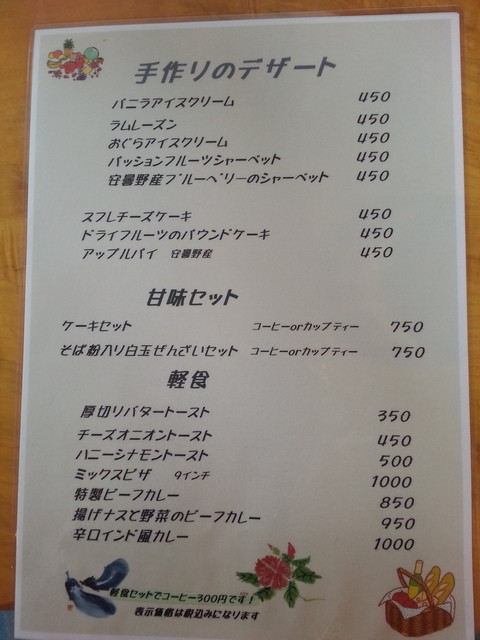 手作りのデザート
バニラアイスクリーム 450
ラムレーズン 450
おぐらアイスクリーム 450
パッションフルーツシャーベット 450
安曇野産ブルーベリーのシャーベット 450
スフレチーズケーキ 450
ドライフルーツのパウンドケーキ 450
アップルパイ 安曇野産 450
甘味セット
ケーキセット コーヒーorカップティー 750
そば粉入り白玉ぜんざいセット コーヒーorカップティー 750
軽食
厚切りバタートースト 350
チーズオニオントースト 450
ハニーシナモントースト 500
ミックスピザ 9インチ 1000
特製ビーフカレー 850
揚げナスと野菜のビーフカレー 950
辛口インド風カレー 1000
軽食セットでコーヒー300円です!
表示価格は税込みになります